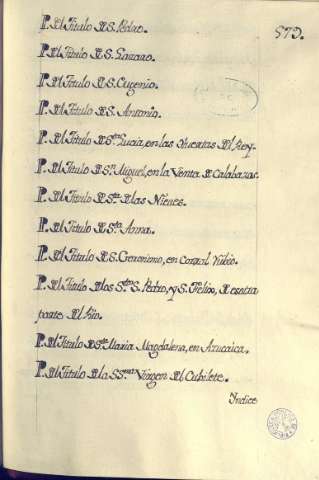 579.
P. del Titulo de S. Pedro.
P. del Titulo de S. Lazaro.
P. del Titulo de S. Eugenio.
P. del Titulo de S. Antonio.
P. del Titulo de Sta. Lucia, en las Huertas del Rey.
P. del Titulo de Sn. Miguel, en la Venta de Calabazas.
P. del Titulo de Sta. de las Nieves.
P. del Titulo de Sta. Anna.
P. del Titulo de S. Geronimo, en Corral Rubio.
P. del Titulo de los Stos. S. Pedro, y S. Felix, de esotra
parte del Rio.
P. del Titulo de Sta. Maria Magdalena, en Azucaica.
P. del Titulo de la SSma. Virgen del Cubilete.
Yndice